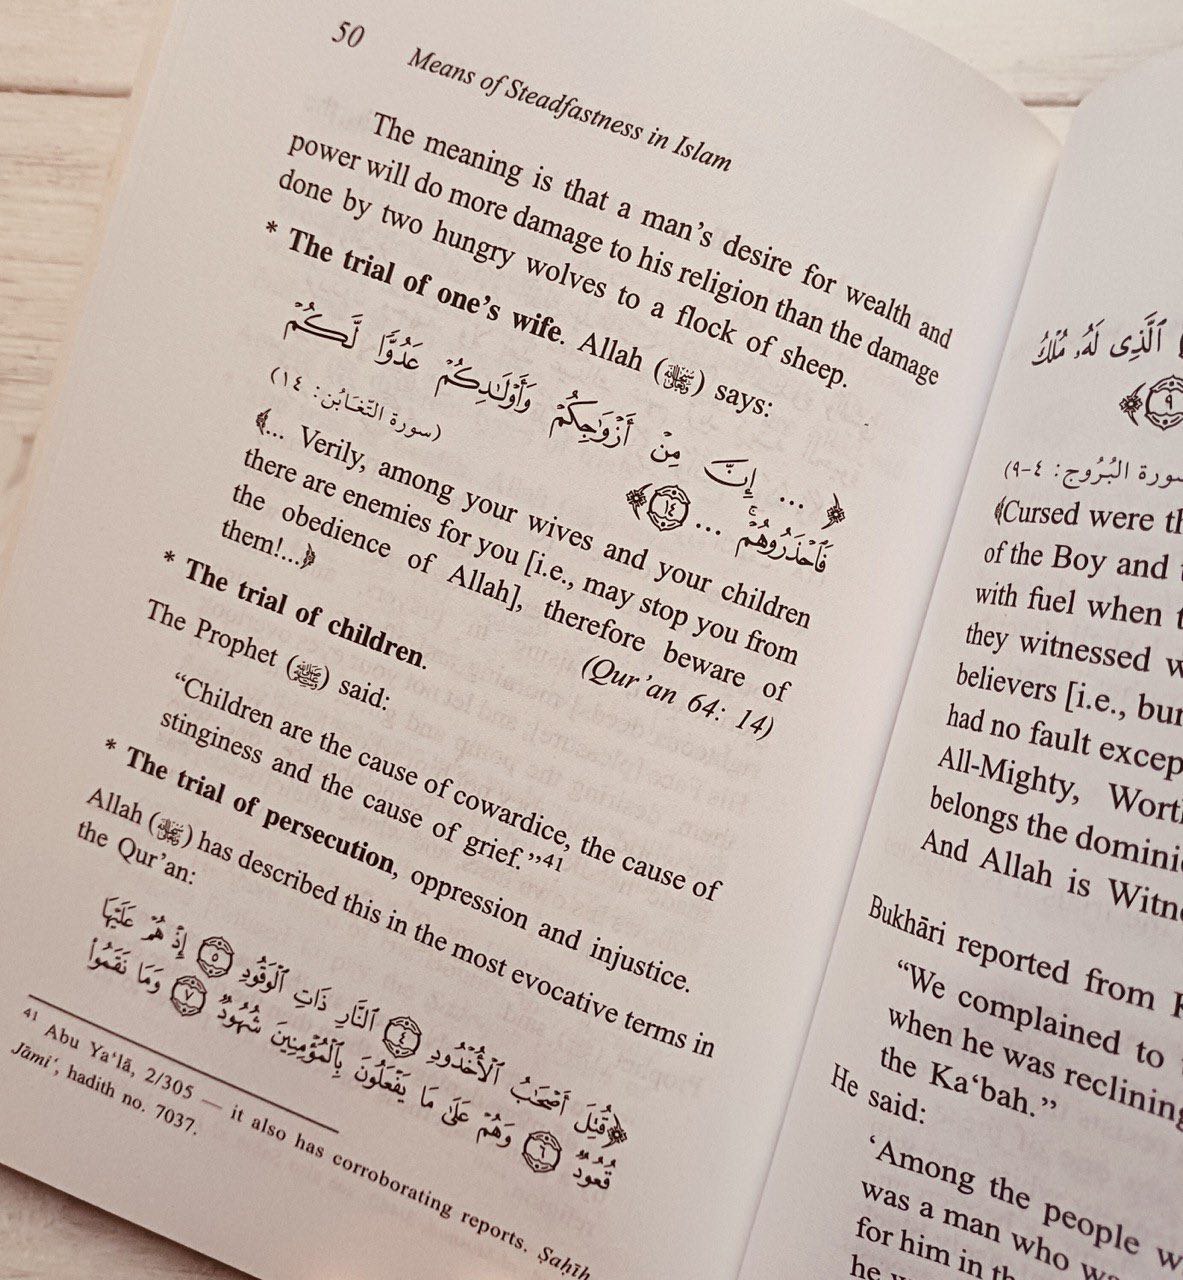 50 Means of Steadfastness in Islam
The meaning is that a man's desire for wealth and
power will do more damage to his religion than the damage
done by two hungry wolves to a flock of sheep.
* The trial of one's wife. Allah (ﷻ) says:
﴿ ... إِنَّ مِنْ أَزْوَٰجِكُمْ وَأَوْلَـٰدِكُمْ عَدُوًّا لَّكُمْ
فَٱحْذَرُوهُمْ ۚ ... ١٤ ﴾
(سورة التّغَابُن: ١٤)
﴾... Verily, among your wives and your children
there are enemies for you [i.e., may stop you from
the obedience of Allah], therefore beware of
them!...﴿ (Qur'an 64: 14)
* The trial of children.
The Prophet (ﷺ) said:
“Children are the cause of cowardice, the cause of
stinginess and the cause of grief.”41
* The trial of persecution, oppression and injustice.
Allah (ﷻ) has described this in the most evocative terms in
the Qur'an:
﴿قُتِلَ أَصْحَـٰبُ ٱلْأُخْدُودِ ٤ ٱلنَّارِ ذَاتِ ٱلْوَقُودِ ٥ إِذْ هُمْ عَلَيْهَا
قُعُودٌ ٦ وَهُمْ عَلَىٰ مَا يَفْعَلُونَ بِٱلْمُؤْمِنِينَ شُهُودٌ ٧ وَمَا نَقَمُوا۟
41 Abu Ya‘lā, 2/305 — it also has corroborating reports. Ṣaḥīḥ
Jāmi‘, hadith no. 7037.
ٱلَّذِى لَهُۥ مُلْكُ
٩ ﴾
سورة البُرُوج: ٤-٩)
﴾Cursed were
of the Boy and
with fuel when
they witnessed
believers [i.e.,
had no fault
All-Mighty,
belongs the
And Allah is
Bukhāri reported from
“We complained to
when he was reclining
the Ka‘bah.”
He said:
‘Among the people
was a man who
for him in
he